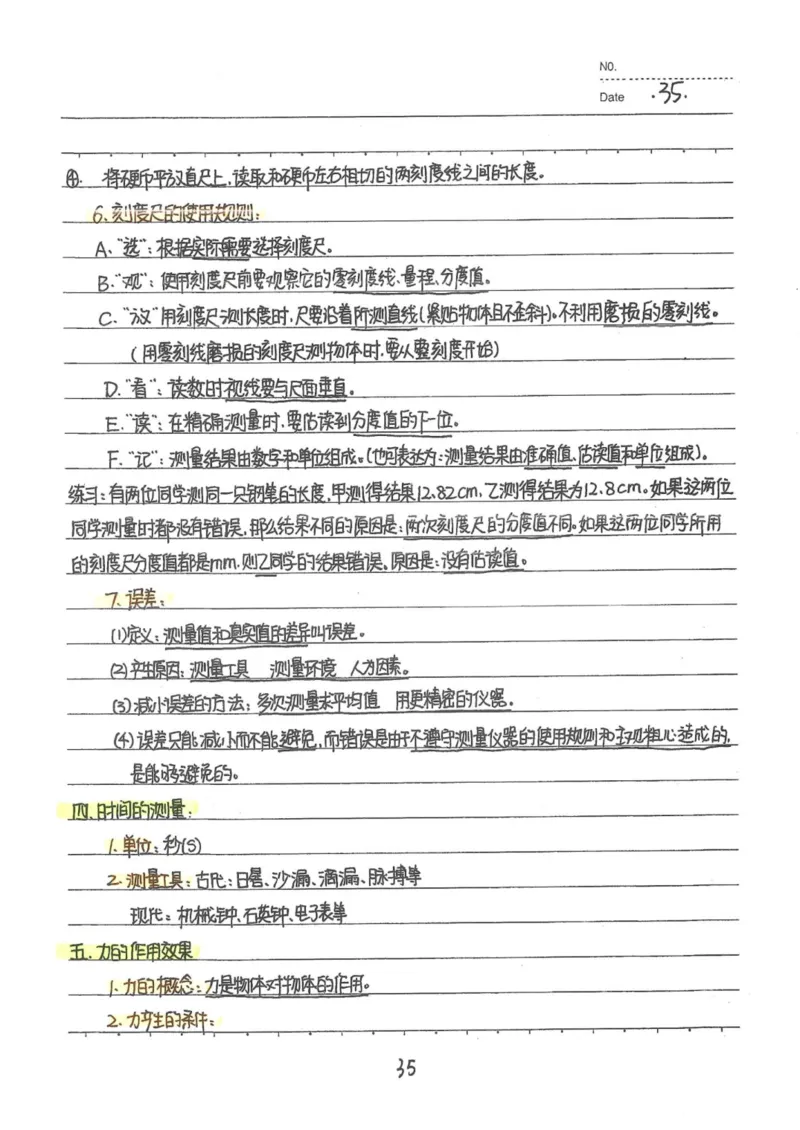 NO.
Date .35.
④. 将硬币平放直尺上，读取和硬币左右相切的两刻度线之间的长度。
6.刻度尺的使用规则：
A、“选”：根据实际需要选择刻度尺。
B、“观”：使用刻度尺前要观察它的零刻度线、量程、分度值。
C、“放”用刻度尺测长度时，尺要沿着所测直线(紧贴物体且不歪斜)。不利用磨损的零刻线。
(用零刻线磨损的刻度尺测物体时，要从整刻度开始)
D、“看”：读数时视线要与尺面垂直。
E、“读”：在精确测量时，要估读到分度值的下一位。
F、“记”：测量结果由数字和单位组成。(也可表达为：测量结果由准确值、估读值和单位组成)。
练习：有两位同学测同一只钢笔的长度，甲测得结果12.82cm，乙测得结果为12.8cm。如果这两位
同学测量时都没有错误，那么结果不同的原因是：两次刻度尺的分度值不同。如果这两位同学所用
的刻度尺分度值都是mm，则乙同学的结果错误。原因是：没有估读值。
7.误差：
(1)定义：测量值和真实值的差异叫误差。
(2)产生原因：测量工具 测量环境 人为因素。
(3)减小误差的方法：多次测量求平均值 用更精密的仪器。
(4)误差只能减小而不能避免，而错误是由于不遵守测量仪器的使用规则和主观粗心造成的，
是能够避免的。
四、时间的测量：
1.单位：秒(S)
2.测量工具：古代：日晷、沙漏、滴漏、脉搏等
现代：机械钟、石英钟、电子表等
五、力的作用效果
1.力的概念：力是物体对物体的作用。
2.力产生的条件：
35